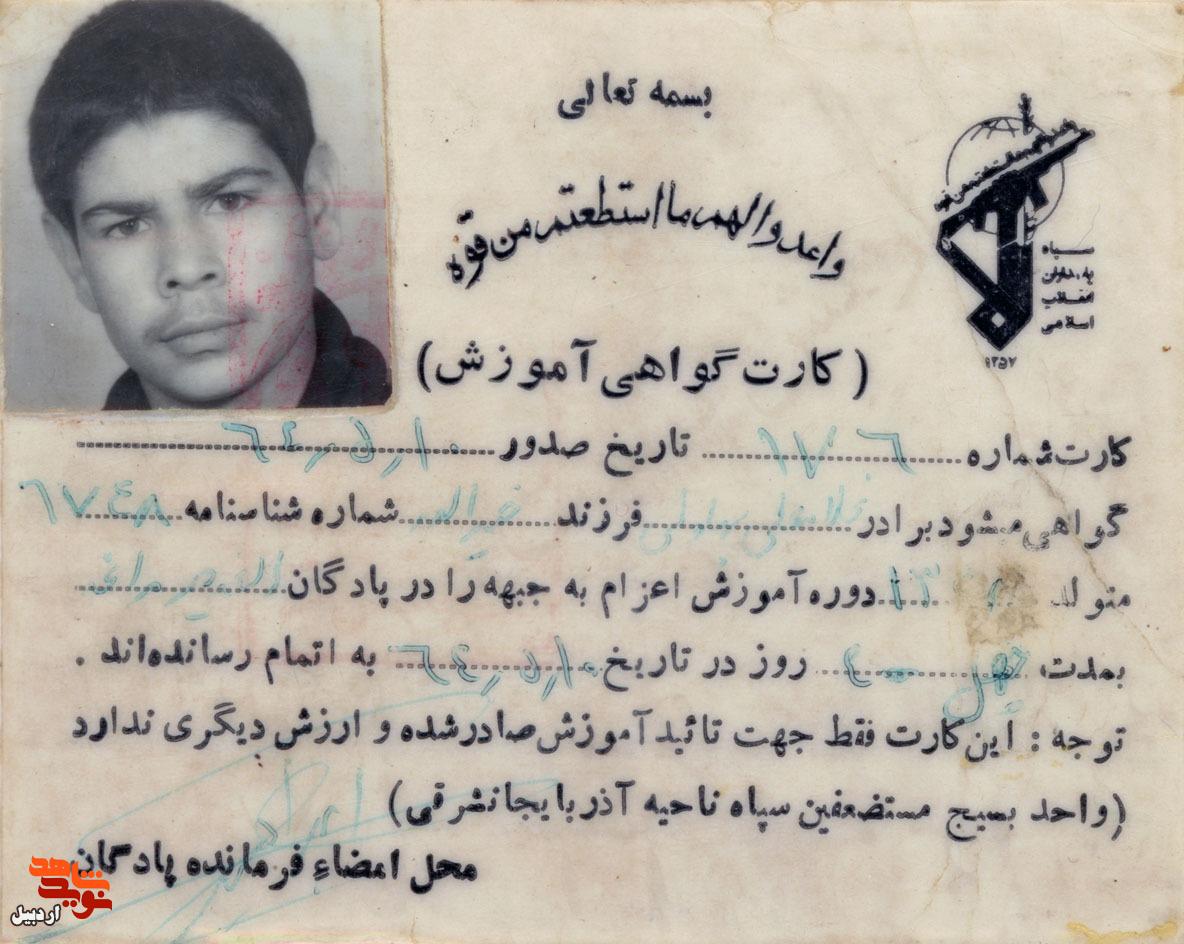 بسمه تعالی
واعدوا لهم ما استطعتم من قوه
سپاه
پاسداران
انقلاب
اسلامی
۱۳۵۷
(کارت گواهی آموزش)
کارت شماره ۱۷۰۶ تاریخ صدور ۶٤٫۵٫۱۰
گواهی میشود برادر فرزند شماره شناسنامه ۶۷٤۸
متولد دوره آموزش اعزام به جبهه را در پادگان
بمدت چهل ٤۰ روز در تاریخ ۶٤٫۵٫۱۰ به اتمام رسانده‌اند .
توجه : این کارت فقط جهت تائید آموزش صادر شده و ارزش دیگری ندارد
(واحد بسیج مستضعفین سپاه ناحیه آذربایجانشرقی)
محل امضاء فرمانده پادگان
نوید شاهد
اردبیل